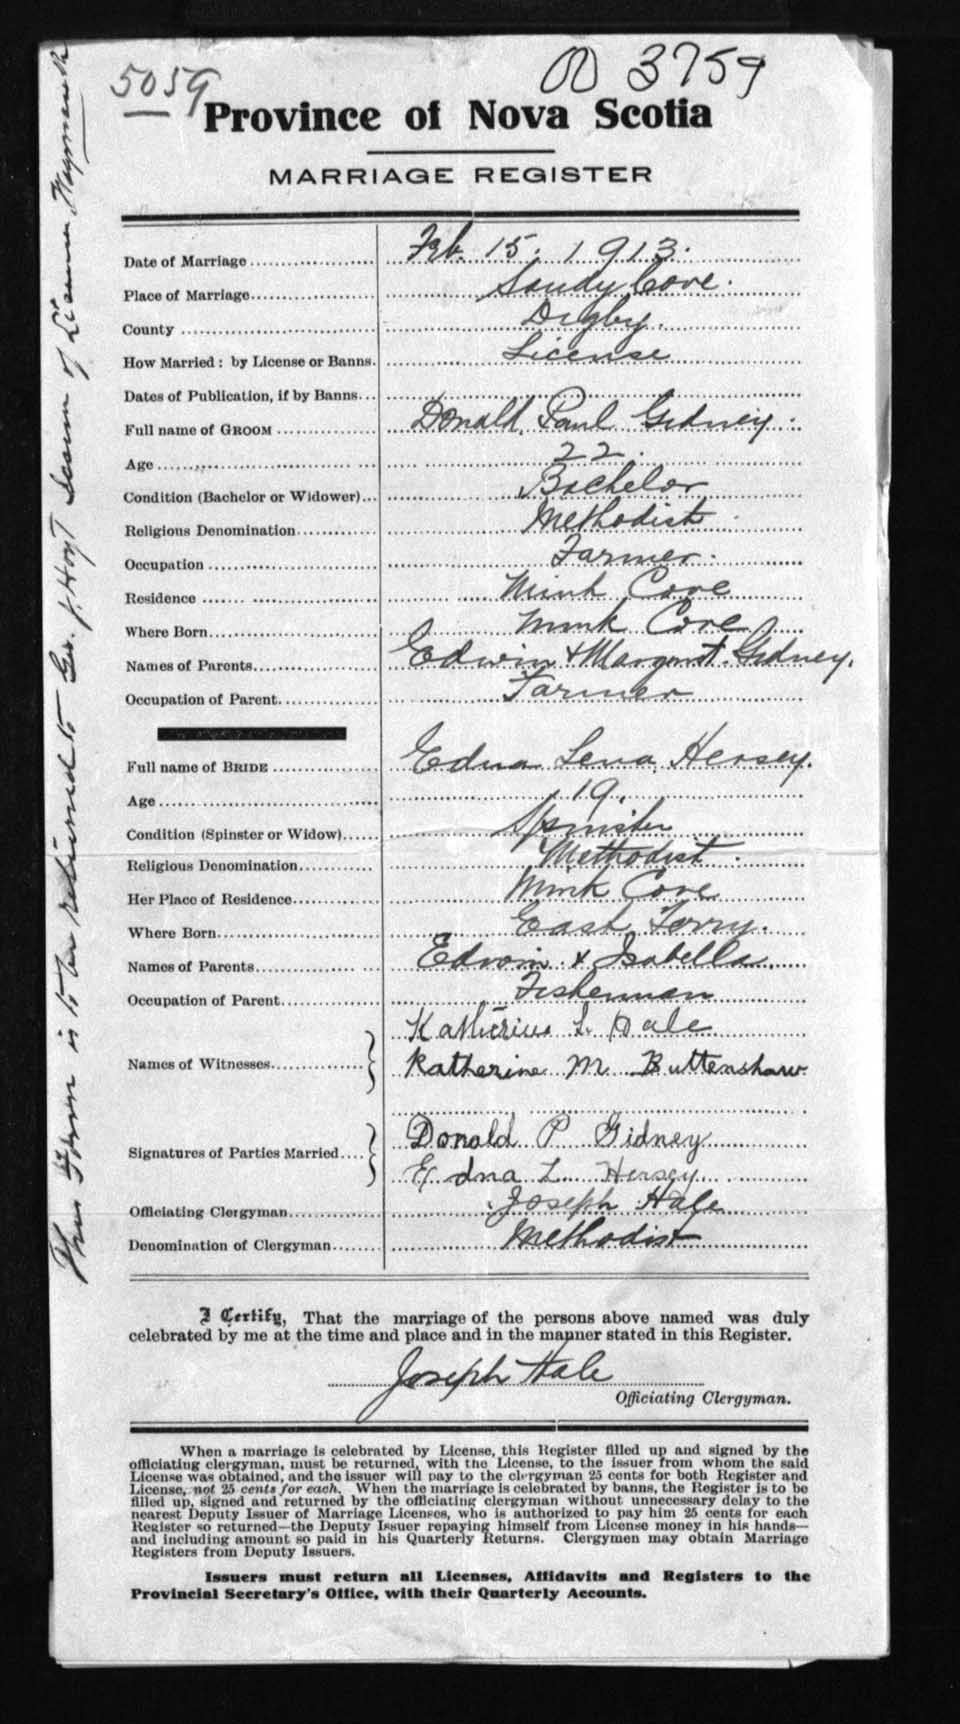 5059
3759
Province of Nova Scotia
MARRIAGE REGISTER
Date of Marriage Feb. 15. 1913.
Place of Marriage Sandy Cove.
County Digby.
How Married: by License or Banns. License
Dates of Publication, if by Banns
Full name of GROOM Donald Paul Gidney
Age 22.
Condition (Bachelor or Widower) Bachelor
Religious Denomination Methodist
Occupation Farmer.
Residence Mink Cove
Where Born Mink Cove
Names of Parents Edwin & Margaret Gidney.
Occupation of Parent Farmer
Full name of BRIDE Edna Lena Hersey.
Age 19.
Condition (Spinster or Widow) Spinster
Religious Denomination Methodist.
Her Place of Residence Mink Cove
Where Born East Ferry.
Names of Parents Edwin & Isabella.
Occupation of Parent Fisherman
Katherine L. Hale
Names of Witnesses Katherine M Buttenshaw
Donald P Gidney
Signatures of Parties Married
Edna L. Hersey
Officiating Clergyman Joseph Hale
Denomination of Clergyman Methodist
I Certify, That the marriage of the persons above named was duly
celebrated by me at the time and place and in the manner stated in this Register.
Joseph Hale
Officiating Clergyman.
When a marriage is celebrated by License, this Register filled up and signed by the
officiating clergyman, must be returned, with the License, to the issuer from whom the said
License was obtained, and the issuer will pay to the clergyman 25 cents for both Register and
License, not 25 cents for each. When the marriage is celebrated by banns, the Register is to be
filled up, signed and returned by the officiating clergyman without unnecessary delay to the
nearest Deputy Issuer of Marriage Licenses, who is authorized to pay him 25 cents for each
Register so returned—the Deputy Issuer repaying himself from License money in his hands—
and including amount so paid in his Quarterly Returns. Clergymen may obtain Marriage
Registers from Deputy Issuers.
Issuers must return all Licenses, Affidavits and Registers to the
Provincial Secretary's Office, with their Quarterly Accounts.
This Form is to be returned to Geo. J. Hoyt Issuer of License Weymouth